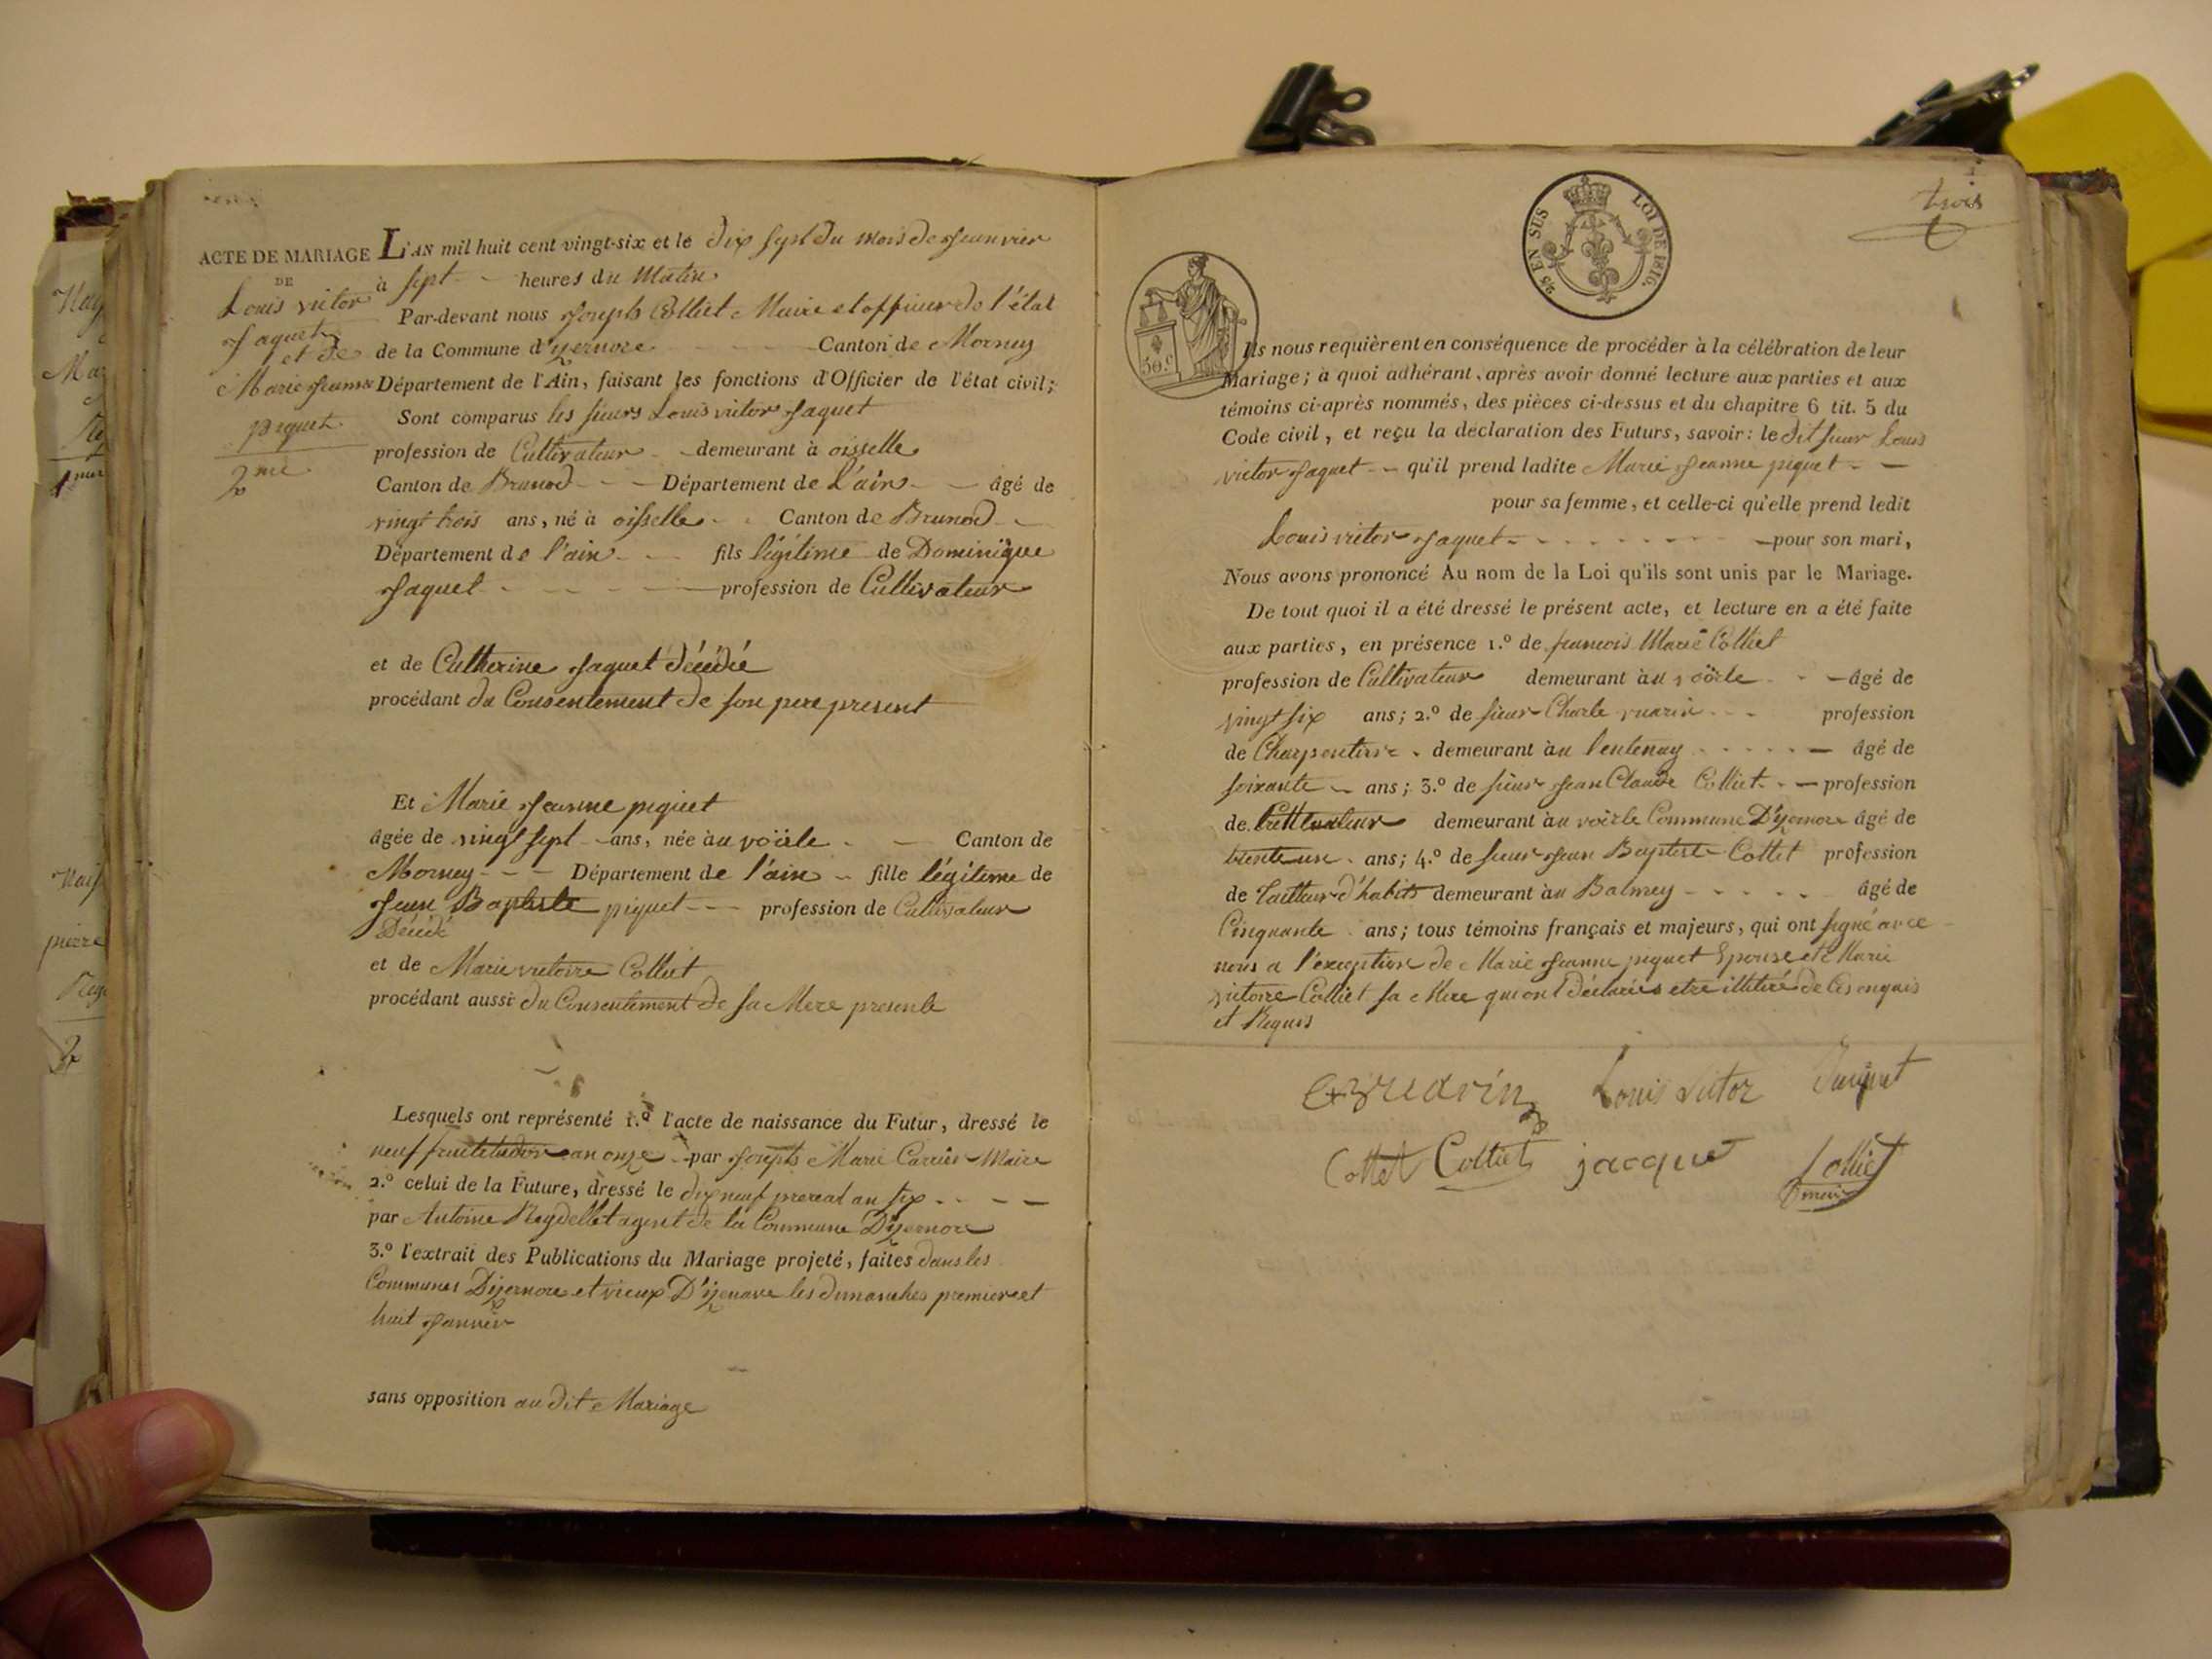 ACTE DE MARIAGE
DE
Louis victor
Jaquet
et de
Marie Jeanne
piquet
2me
L'AN mil huit cent vingt-six et le dix sept du mois de Jeanvier
à sept heures du Matin
Par-devant nous Joseph Colliet Maire et officier de l'état
de la Commune d'yzernore Canton de Mornay
Département de l'Ain, faisant les fonctions d'Officier de l'état civil;
Sont comparus les sieurs Louis victor Jaquet
profession de Cultivateur demeurant à oisselle
Canton de Brunod Département de L'ain âgé de
vingt trois ans, né à oisselle Canton de Brunod
Département de l'ain fils légitime de Dominique
Jaquet profession de Cultivateur
et de Catherine Jaquet décédée
procédant du Consentement de son pere present
Et Marie Jeanne piquet
âgée de vingt sept ans, née au voërle Canton de
Mornay Département de l'ain fille légitime de
Jean Baptiste piquet profession de Cultivateur
Décédé
et de Marie victoire Colliet
procédant aussi du Consentement de sa Mere presente
Lesquels ont représenté 1.º l'acte de naissance du Futur, dressé le
neuf an onze par Joseph Marie Carrier Maire
2.º celui de la Future, dressé le dix neuf prereal an six
par Antoine Reydellet agent de la Commune D'yzernore
3.º l'extrait des Publications du Mariage projeté, faites dans les
Communes D'izernore et vieux D'izenave les dimanches premier et
huit Janvier
sans opposition au dit Mariage
trois
2/5 EN SUS LOI DE 1816.
50.c
Ils nous requièrent en conséquence de procéder à la célébration de leur
Mariage; à quoi adhérant, après avoir donné lecture aux parties et aux
témoins ci-après nommés, des pièces ci-dessus et du chapitre 6 tit. 5 du
Code civil, et reçu la déclaration des Futurs, savoir: le dit sieur Louis
victor Jaquet qu'il prend ladite Marie Jeanne piquet
pour sa femme, et celle-ci qu'elle prend ledit
Louis victor Jaquet pour son mari,
Nous avons prononcé Au nom de la Loi qu'ils sont unis par le Mariage.
De tout quoi il a été dressé le présent acte, et lecture en a été faite
aux parties, en présence 1.º de francois Marie Colliet
profession de Cultivateur demeurant au voërle âgé de
vingt six ans; 2.º de sieur Charle vuarin profession
de Charpentier demeurant au Centenay âgé de
soixante ans; 3.º de sieur Jean Claude Colliet profession
de Cultivateur demeurant au voërle Commune D'yzernore âgé de
trente un ans; 4.º de sieur Jean Baptiste Cottet profession
de Tailleur d'habits demeurant au Balmey âgé de
Cinquante ans; tous témoins français et majeurs, qui ont signé avec
nous a l'exception de Marie Jeanne piquet Epouse et Marie
victoire Colliet sa Mere qui ont déclarées etre illitéré de Ces enquis
et Requis
Louis victor Jacquet
Cottet Colliet jacque Colliet
maire